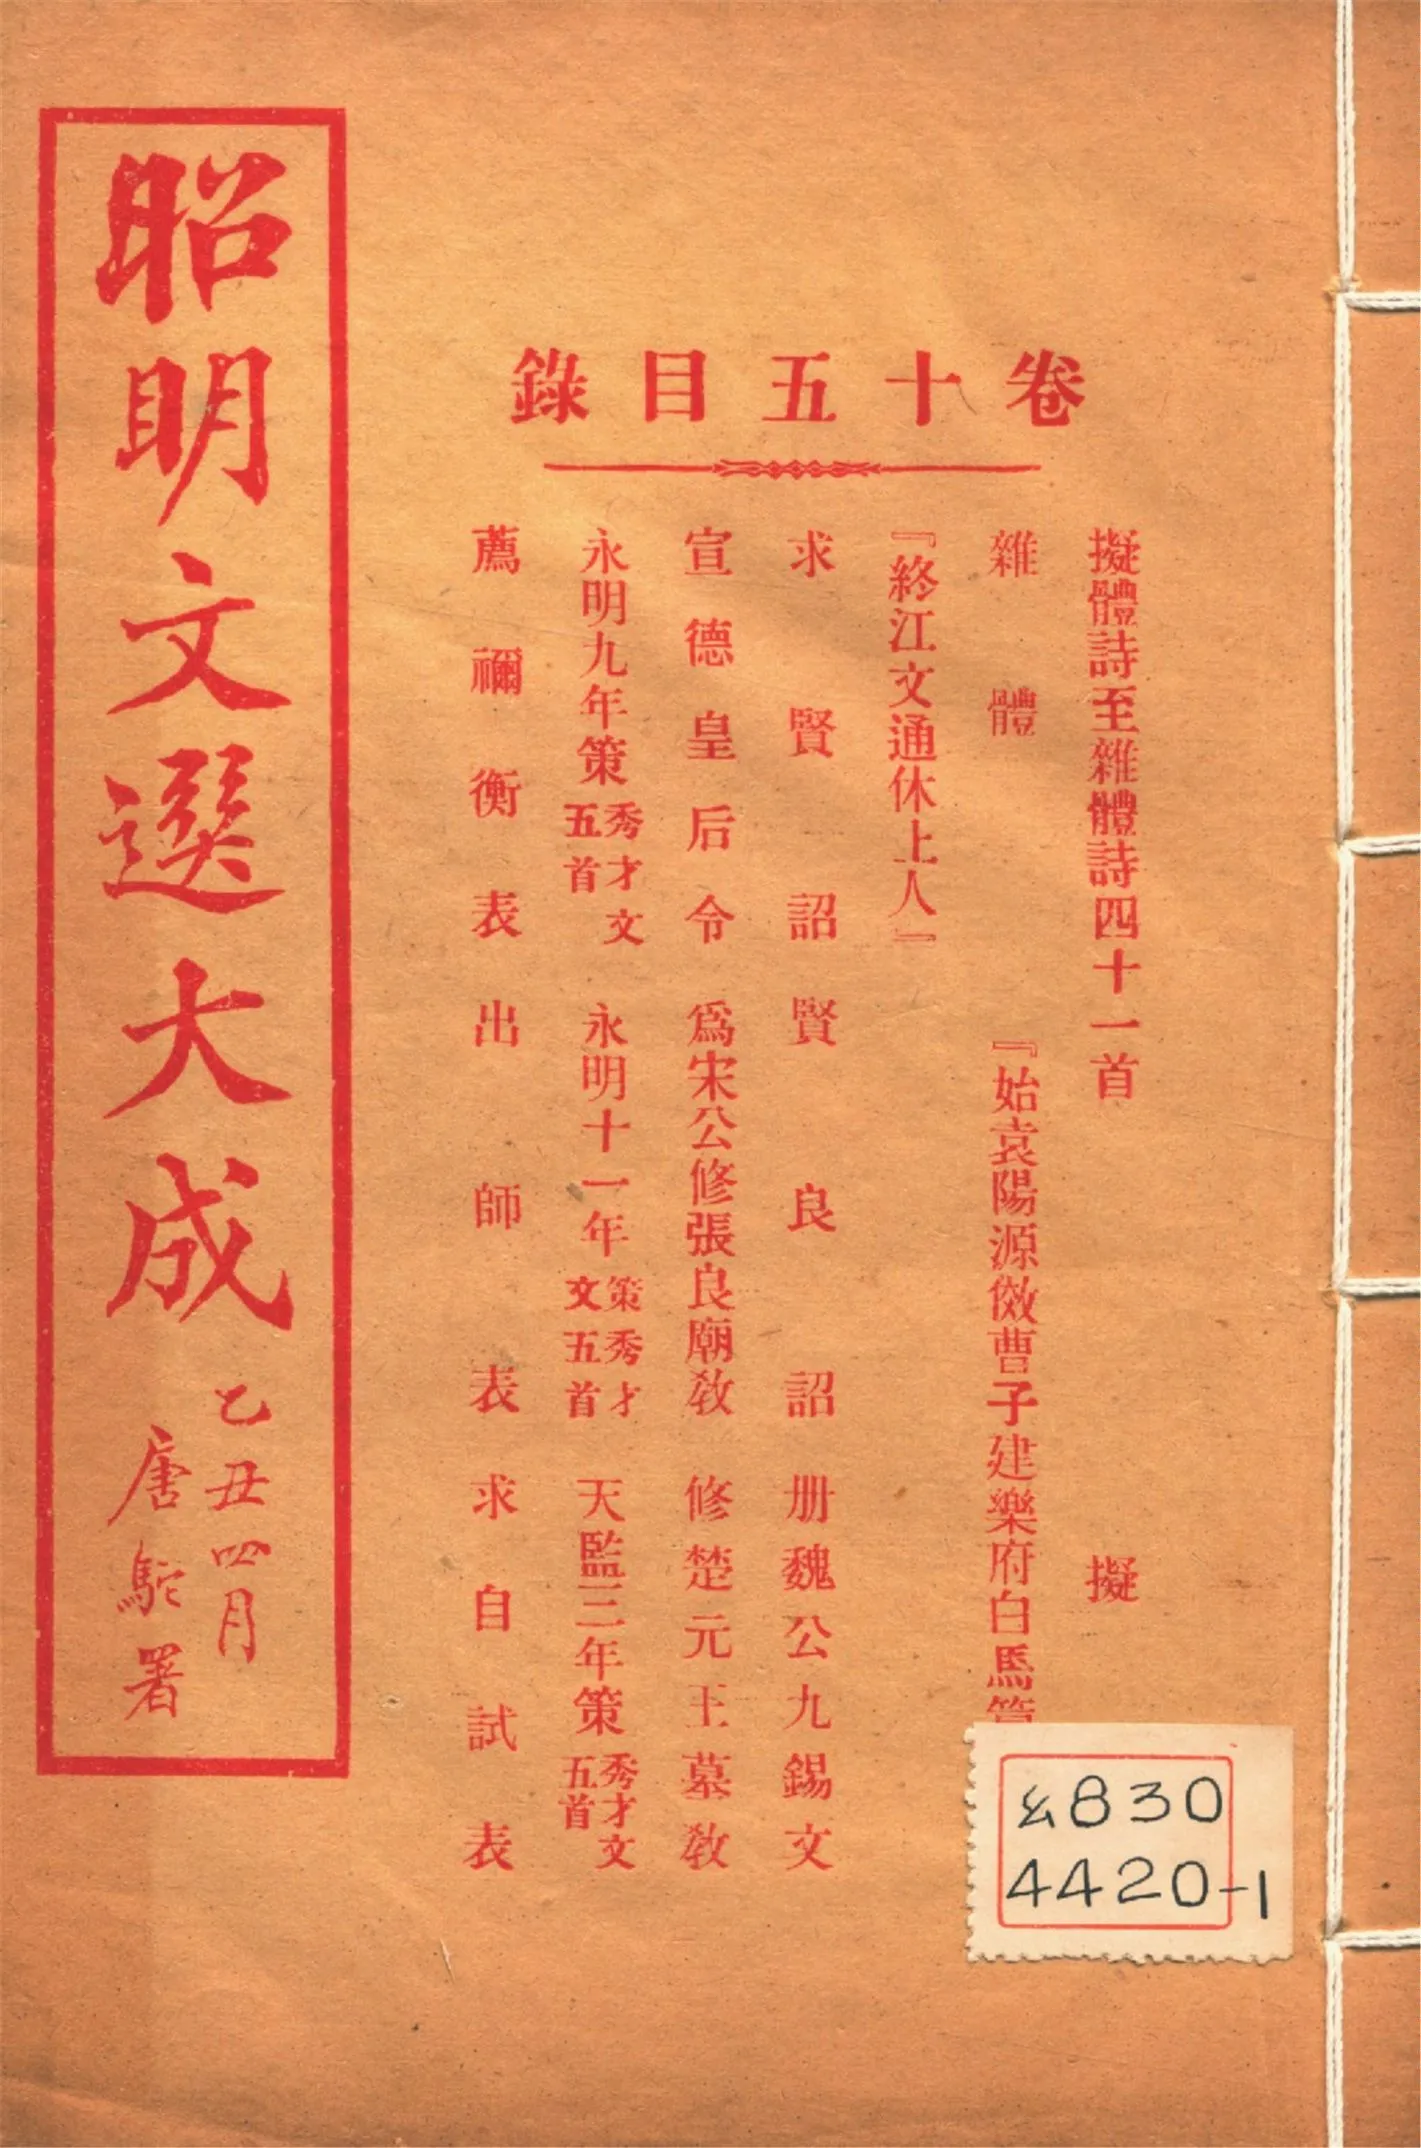 昭明文選大成
乙丑四月
唐駝署
卷十五目錄
擬體詩至雜體詩四十一首 擬
雜體 『始袁陽源傚曹子建樂府白馬篇
『終江文通休上人』
求賢詔 賢良詔 册魏公九錫文
宣德皇后令 爲宋公修張良廟教 修楚元王墓教
永明九年策秀才文五首 永明十一年策秀才文五首 天監三年策秀才文五首
薦禰衡表 出師表 求自試表
830
4420-1